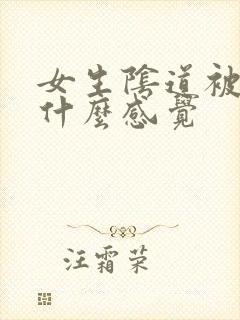 女生陰道被
什麼感覺
汪霜荣